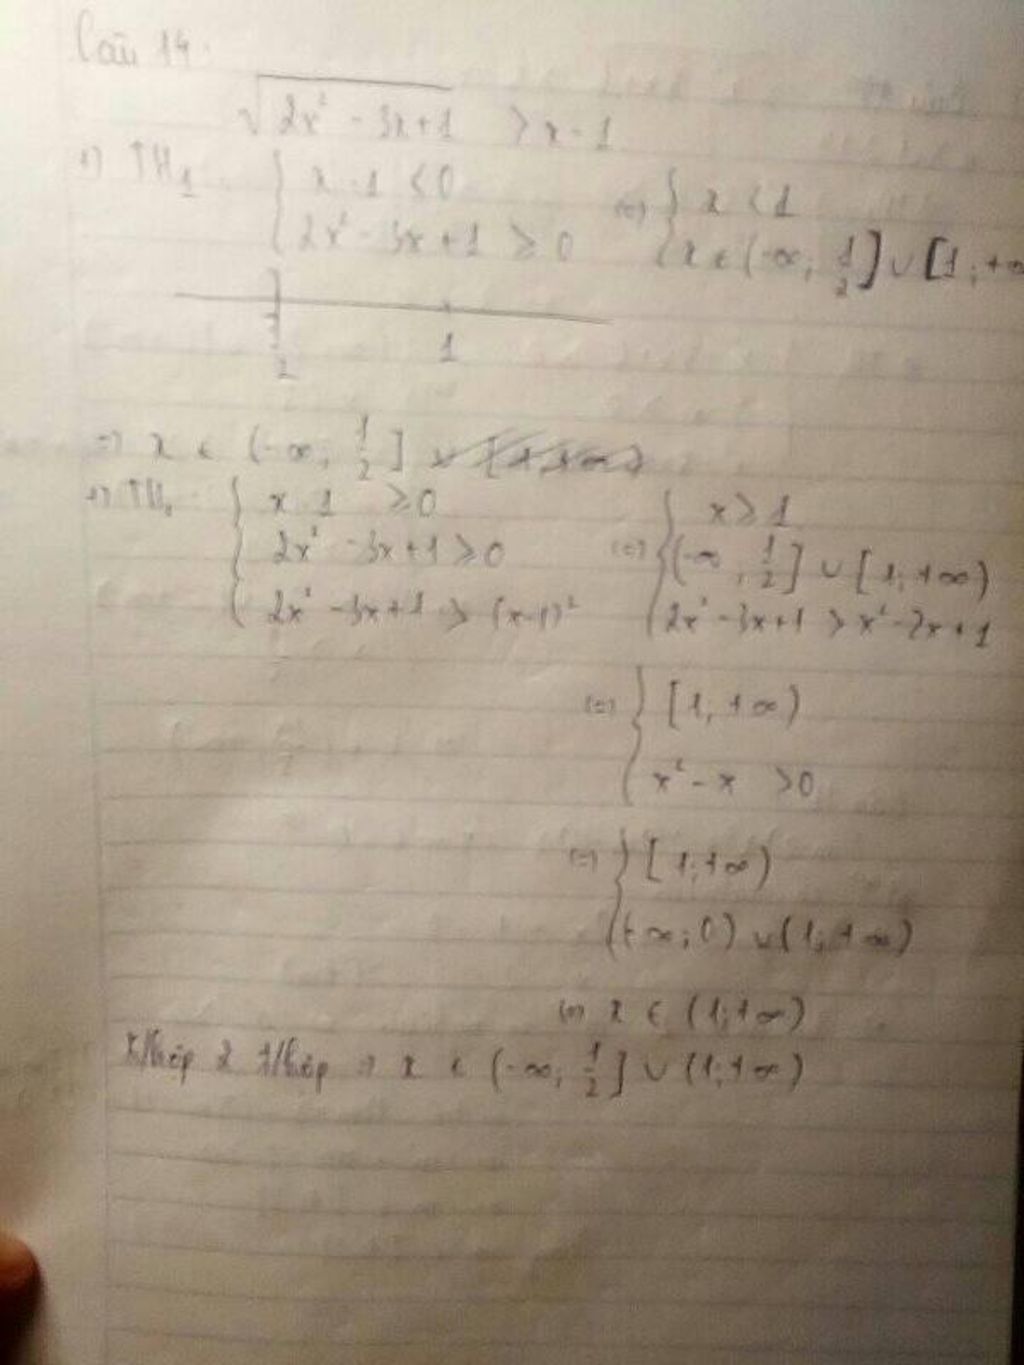 Câu 14.
√(2x² - 3x + 1) > x - 1
+) TH₁ { x - 1 < 0 (=) { x < 1
{ 2x² - 3x + 1 ≥ 0 { x ∈ (-∞; 1/2] ∪ [1; +∞
1/2 1
=> x ∈ (-∞; 1/2]
+) TH₂ { x - 1 ≥ 0 (=) { x ≥ 1
{ 2x² - 3x + 1 ≥ 0 { (-∞; 1/2] ∪ [1; +∞)
{ 2x² - 3x + 1 > (x-1)² { 2x² - 3x + 1 > x² - 2x + 1
(=) { [1; +∞)
{ x² - x > 0
(=) { [1; +∞)
{ (-∞; 0) ∪ (1; +∞)
(=) x ∈ (1; +∞)
K/hợp 2 t/hợp => x ∈ (-∞; 1/2] ∪ (1; +∞)